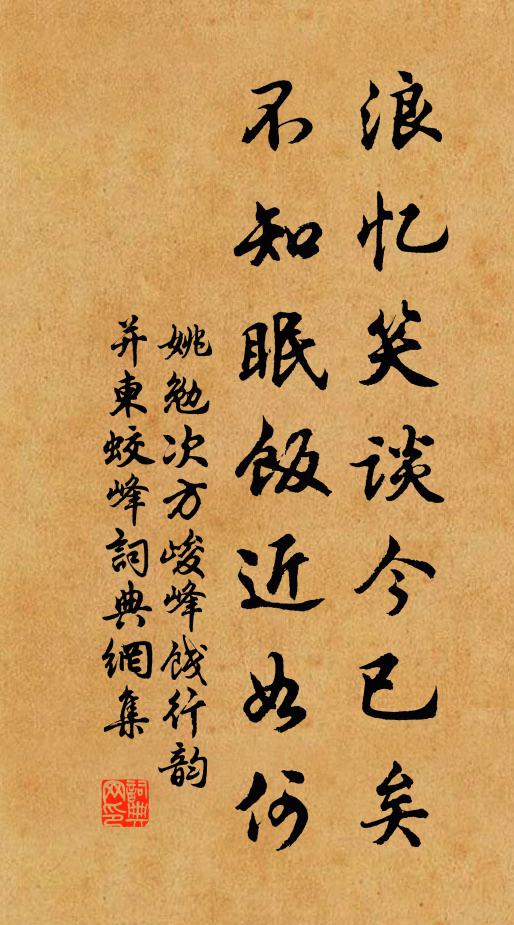 浪忆笑谈今已矣
不知眠饭近如何
姚勉次方峻峰饯行韵
并柬蛟峰詞典網集
詞典
网印